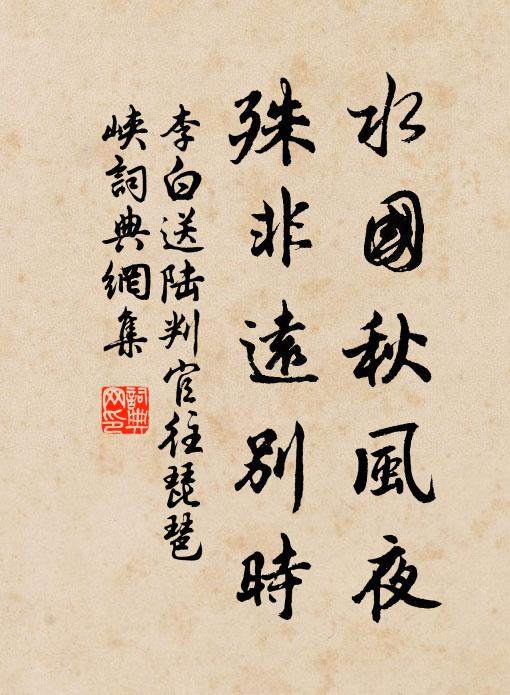 水國秋風夜
殊非遠別時
李白送陆判官往琵琶
峡詞典網集
詞典
网印